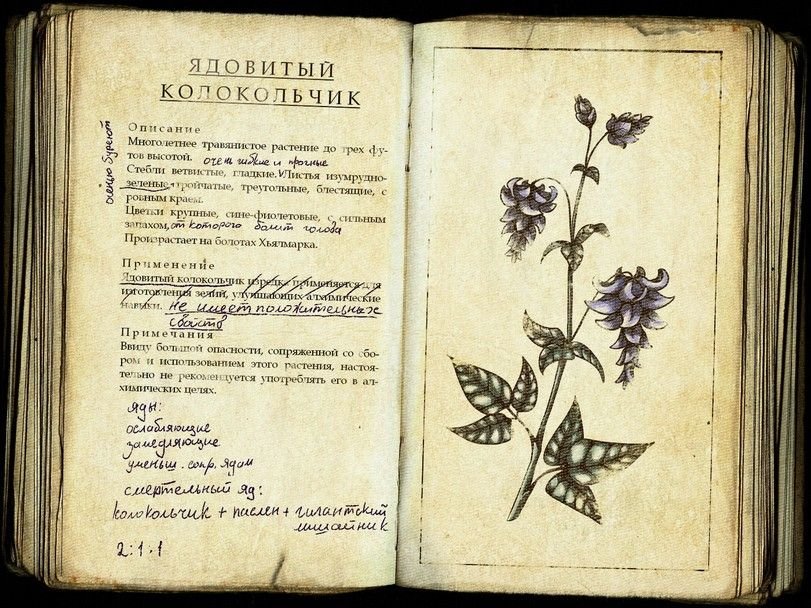 ЯДОВИТЫЙ
КОЛОКОЛЬЧИК
Описание
Многолетнее травянистое растение до трех фу-
тов высотой. очень гибкие и прочные
Стебли ветвистые, гладкие. Листья изумрудно-
зеленые, тройчатые, треугольные, блестящие, с
ровным краем.
осенью буреют
Цветки крупные, сине-фиолетовые, с сильным
запахом, от которого болит голова
Произрастает на болотах Хьялмарка.
Применение
Ядовитый колокольчик изредка применяется для
изготовления зелий, улучшающих алхимические
навыки. не имеет положительных
свойств
Примечания
Ввиду большой опасности, сопряженной со сбо-
ром и использованием этого растения, настоя-
тельно не рекомендуется употреблять его в ал-
химических целях.
яды:
ослабляющие
замедляющие
уменьш. сопр. ядам
смертельный яд:
колокольчик + паслен + гигантский
лишайник
2:1:1